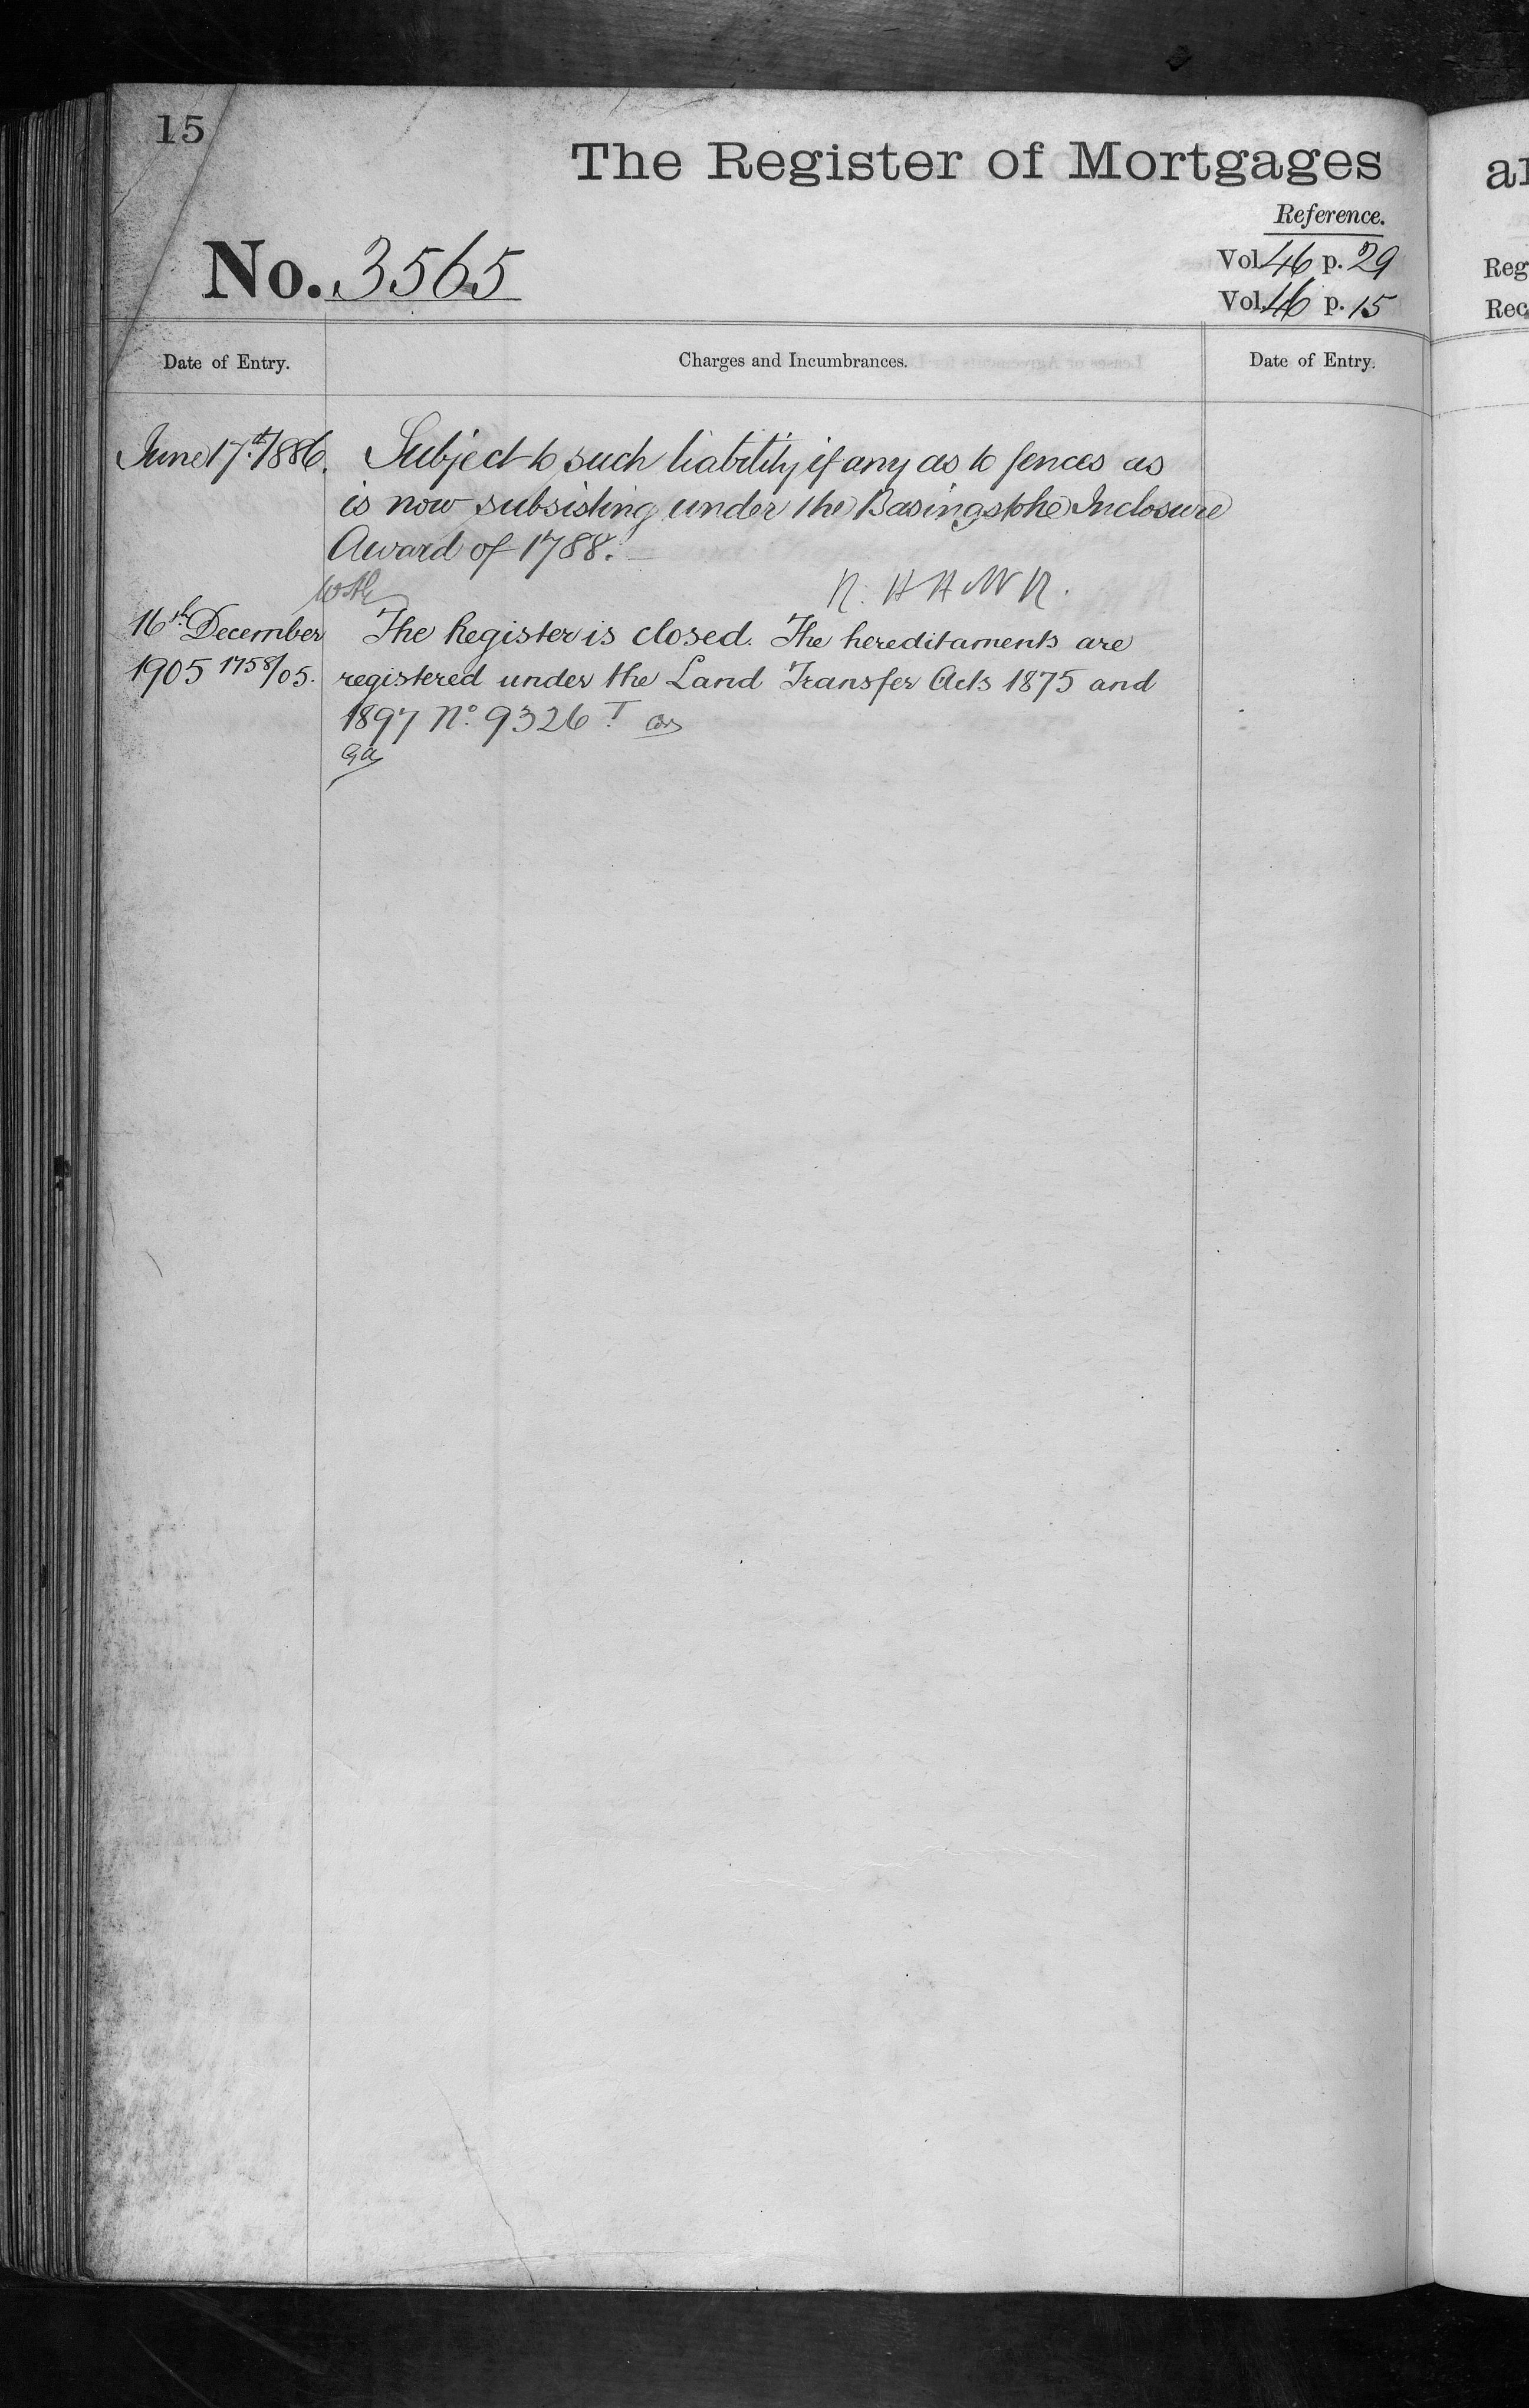 15
The Register of Mortgages
Reference.
No. 3565
Vol. 46 p. 29
Vol. 46 p. 15
Date of Entry.
Charges and Incumbrances.
Date of Entry.
June 17th 1886. Subject to such liability if any as to fences as
is now subsisting under the Basingstoke Inclosure
Award of 1788.
16th December The Register is closed. The hereditaments are
1905 1758/05. registered under the Land Transfer Acts 1875 and
1897 No. 9326 T
Reg
Rec